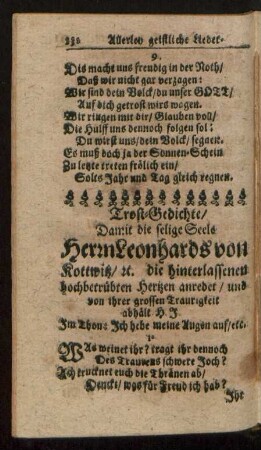 Allerley geistliche Lieder.
9.
Dis macht uns freudig in der Noth/
Daß wir nicht gar verzagen:
Wir sind dein Volck/ du unser GOTT/
Auf dich getrost wirs wagen.
Wir ringen mit dir/ Glauben voll/
Die Hülff uns dennoch folgen sol:
Du wirst uns/ dein Volck/ segnen.
Es muß doch ja der Sonnen-Schein
Zu letzte treten frölich ein/
Solts Jahr und Tag gleich regnen.
Trost-Gedichte/
Damit die selige Seele
Herrn Leonhards von
Kottwitz/ ꝛc. die hinterlassenen
hochbetrübten Hertzen anredet/ und
von ihrer grossen Traurigkeit
abhält H. J.
Im Thon: Ich hebe meine Augen auf/ etc.
1.
WAs weinet ihr? tragt ihr dennoch
Des Traurens schwere Joch?
Ach trucknet euch die Thränen ab/
Denckt/ was für Freud ich hab?
Ihr